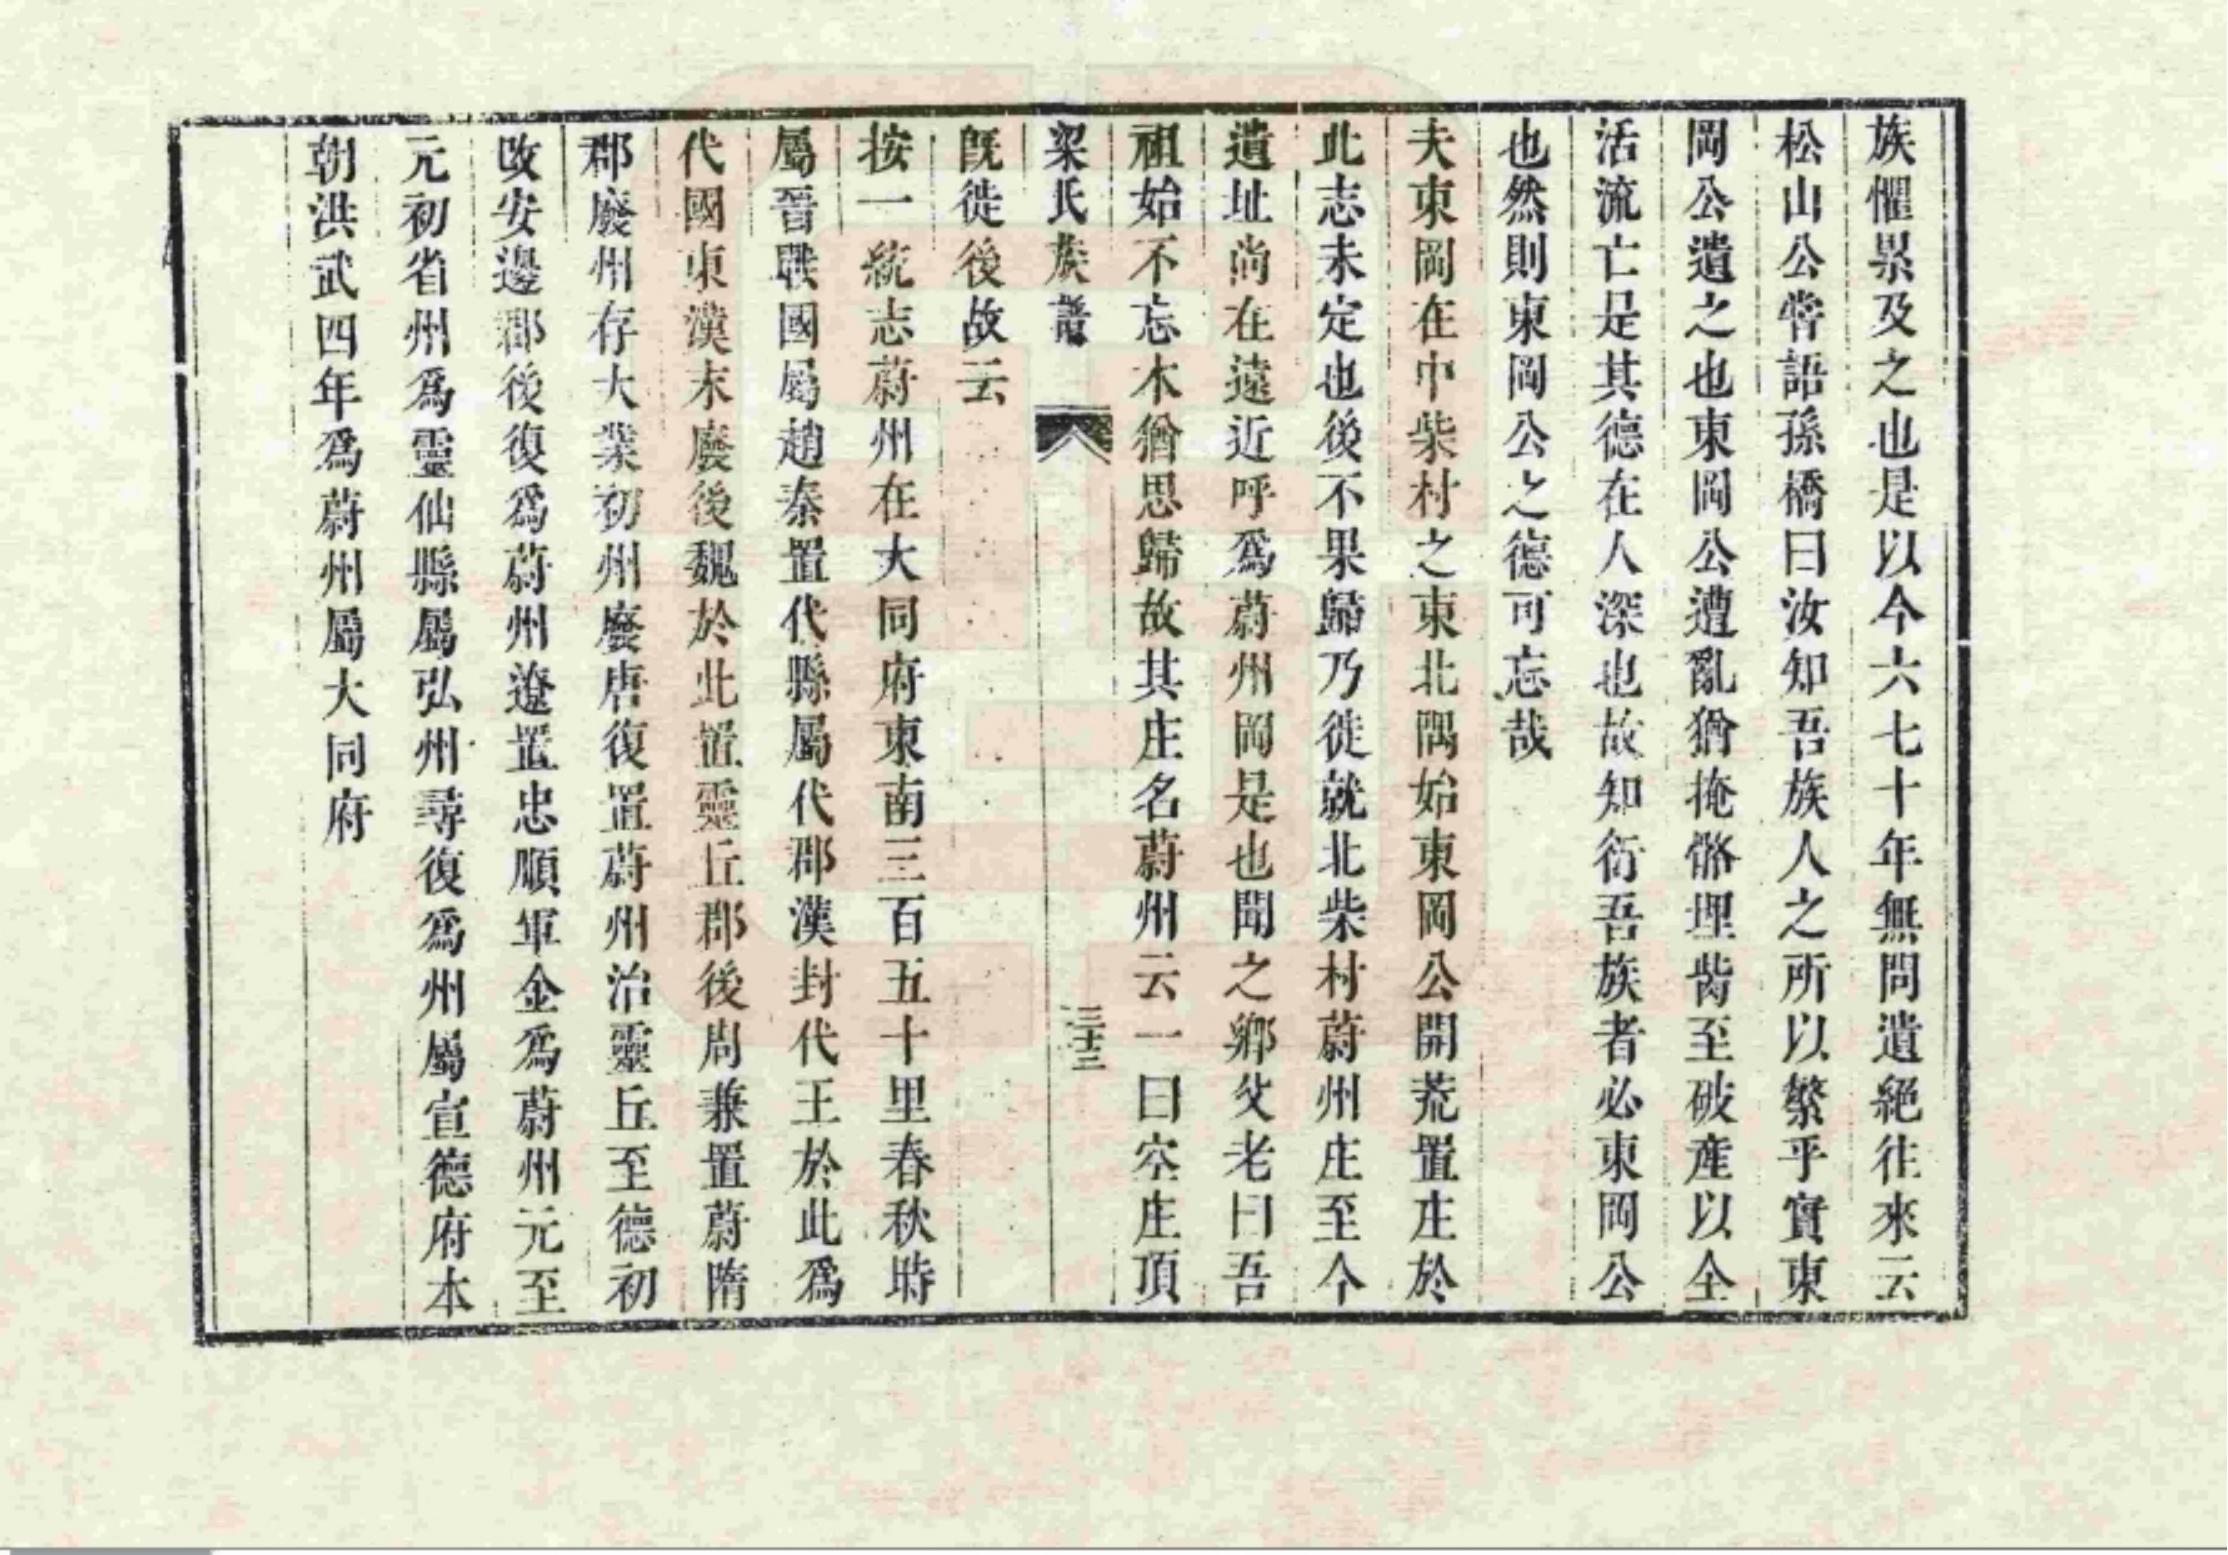 族懼累及之也是以今六七十年無問遺絕往來云
松山公嘗語孫橋曰汝知吾族人之所以繁乎實東
岡公遺之也東岡公遭亂猶掩骼埋胔至破產以全
活流亡是其德在人深也故知衍吾族者必東岡公
也然則東岡公之德可忘哉
夫東岡在中柴村之東北隅始東岡公開荒置庄於
此志未定也後不果歸乃徙就北柴村蔚州庄至今
遺址尚在遠近呼爲蔚州岡是也聞之鄉父老曰吾
祖始不忘木猶思歸故其庄名蔚州云一曰空庄頂
梁氏族譜
三十三
旣徙後故云
按一統志蔚州在大同府東南三百五十里春秋時
屬晉戰國屬趙秦置代縣屬代郡漢封代王於此爲
代國東漢末廢後魏於此置靈丘郡後周兼置蔚隋
郡廢州存大業初州廢唐復置蔚州治靈丘至德初
改安邊郡後復爲蔚州遼置忠順軍金爲蔚州元至
元初省州爲靈仙縣屬弘州尋復爲州屬宣德府本
朝洪武四年爲蔚州屬大同府